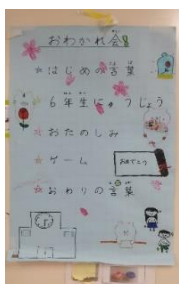 おわかれ会
☆はじめの言葉
☆6年生にゅうじょう
☆おたのしみ
☆ゲーム
おめでとう
☆おわりの言葉